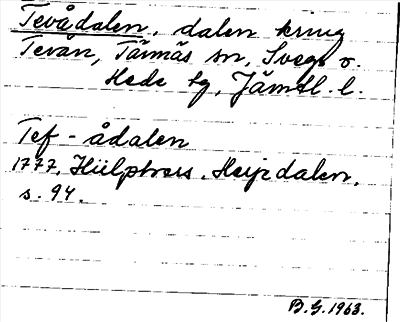 Tevådalen, dalen kring
Tevån, Tännäs sn, Svegs o.
Hede tg, Jämtl. l.
Tef-ådalen
1777, Hülphers. Herjedalen,
s. 94.
B.G. 1963.